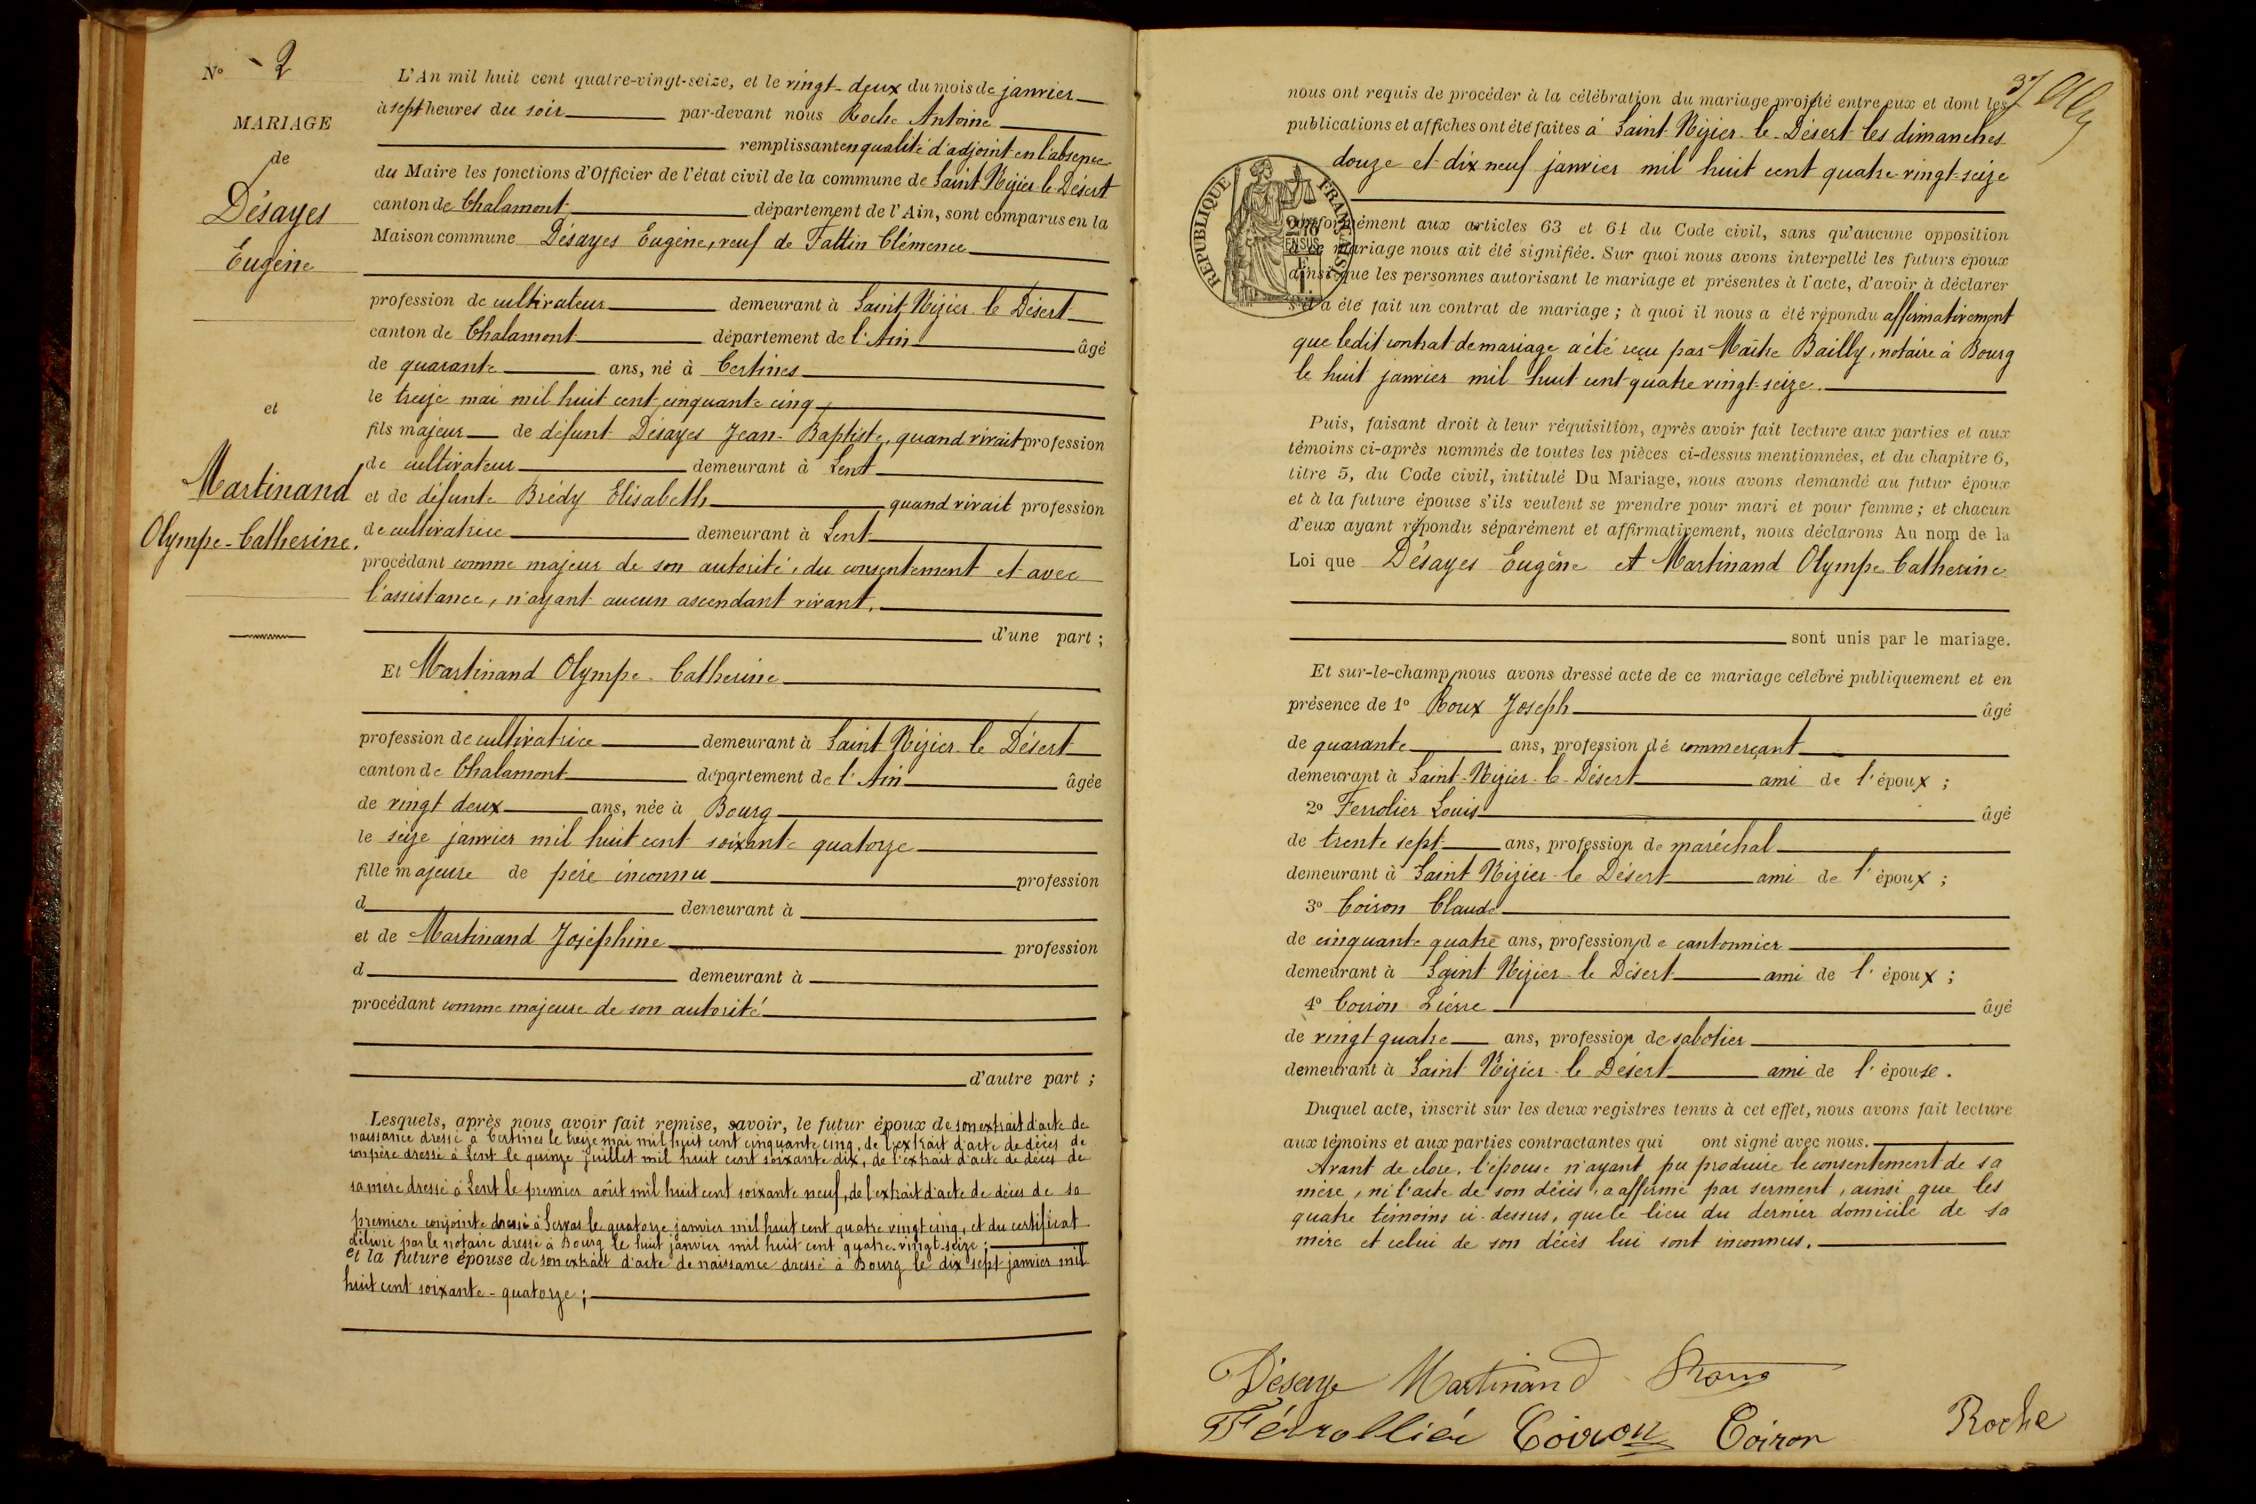 N° 2
MARIAGE
de
Désayes
Eugène
et
Martinand
Olympe-Catherine.
L'An mil huit cent quatre-vingt-seize, et le vingt-deux du mois de janvier
à sept heures du soir par-devant nous Roche Antoine
remplissant en qualité d'adjoint en l'absence
du Maire les fonctions d'Officier de l'état civil de la commune de Saint Nizier le Désert
canton de Chalamont département de l'Ain, sont comparus en la
Maison commune Désayes Eugène, veuf de Tattin Clémence
profession de cultivateur demeurant à Saint Nizier le Désert
canton de Chalamont département de l'Ain âgé
de quarante ans, né à Certines
le treize mai mil huit cent cinquante cinq
fils majeur de défunt Désayes Jean-Baptiste, quand vivait profession
de cultivateur demeurant à Lent
et de défunte Brédy Elisabeth quand vivait profession
de cultivatrice demeurant à Lent
procédant comme majeur de son autorité, du consentement et avec
l'assistance, n'ayant aucun ascendant vivant,
d'une part ;
Et Martinand Olympe-Catherine
profession de cultivatrice demeurant à Saint Nizier le Désert
canton de Chalamont département de l'Ain âgée
de vingt deux ans, née à Bourg
le seize janvier mil huit cent soixante quatorze
fille majeure de père inconnu profession
d demeurant à
et de Martinand Joséphine profession
d demeurant à
procédant comme majeure de son autorité
d'autre part ;
Lesquels, après nous avoir fait remise, savoir, le futur époux de son extrait d'acte de
naissance dressé à Certines le treize mai mil huit cent cinquante cinq, de l'extrait d'acte de décès de
son père dressé à Lent le quinze juillet mil huit cent soixante dix, de l'extrait d'acte de décès de
sa mère dressé à Lent le premier août mil huit cent soixante neuf, de l'extrait d'acte de décès de sa
première conjointe dressé à Servas le quatorze janvier mil huit cent quatre vingt cinq, et du certificat
délivré par le notaire dressé à Bourg le huit janvier mil huit cent quatre-vingt-seize ;
et la future épouse de son extrait d'acte de naissance dressé à Bourg le dix sept janvier mil
huit cent soixante-quatorze ;
37
nous ont requis de procéder à la célébration du mariage projeté entre eux et dont les
publications et affiches ont été faites à Saint-Nizier-le-Désert les dimanches
douze et dix neuf janvier mil huit cent quatre-vingt-seize
REPUBLIQUE FRANÇAISE
conformément aux articles 63 et 64 du Code civil, sans qu'aucune opposition
à ce mariage nous ait été signifiée. Sur quoi nous avons interpellé les futurs époux
ainsi que les personnes autorisant le mariage et présentes à l'acte, d'avoir à déclarer
s'il a été fait un contrat de mariage ; à quoi il nous a été répondu affirmativement
que ledit contrat de mariage a été reçu par Maître Bailly, notaire à Bourg
le huit janvier mil huit cent quatre vingt-seize.
Puis, faisant droit à leur réquisition, après avoir fait lecture aux parties et aux
témoins ci-après nommés de toutes les pièces ci-dessus mentionnées, et du chapitre 6,
titre 5, du Code civil, intitulé Du Mariage, nous avons demandé au futur époux
et à la future épouse s'ils veulent se prendre pour mari et pour femme ; et chacun
d'eux ayant répondu séparément et affirmativement, nous déclarons Au nom de la
Loi que Désayes Eugène et Martinand Olympe Catherine
sont unis par le mariage.
Et sur-le-champ nous avons dressé acte de ce mariage célébré publiquement et en
présence de 1° Roux Joseph âgé
de quarante ans, profession de commerçant
demeurant à Saint-Nizier-le-Désert ami de l'époux ;
2° Ferrolier Louis âgé
de trente sept ans, profession de maréchal
demeurant à Saint Nizier-le Désert ami de l'époux ;
3° Coiron Claude
de cinquante quatre ans, profession de cantonnier
demeurant à Saint Nizier-le Désert ami de l'époux ;
4° Coiron Pierre âgé
de vingt quatre ans, profession de sabotier
demeurant à Saint Nizier-le Désert ami de l'épouse.
Duquel acte, inscrit sur les deux registres tenus à cet effet, nous avons fait lecture
aux témoins et aux parties contractantes qui ont signé avec nous.
Avant de clore, l'épouse n'ayant pu produire le consentement de sa
mère, ni l'acte de son décès, a affirmé par serment, ainsi que les
quatre témoins ci-dessus, que le lieu du dernier domicile de sa
mère et celui de son décès lui sont inconnus.
Désaye Martinand Roux
Férrollier Coiron Coiron Roche